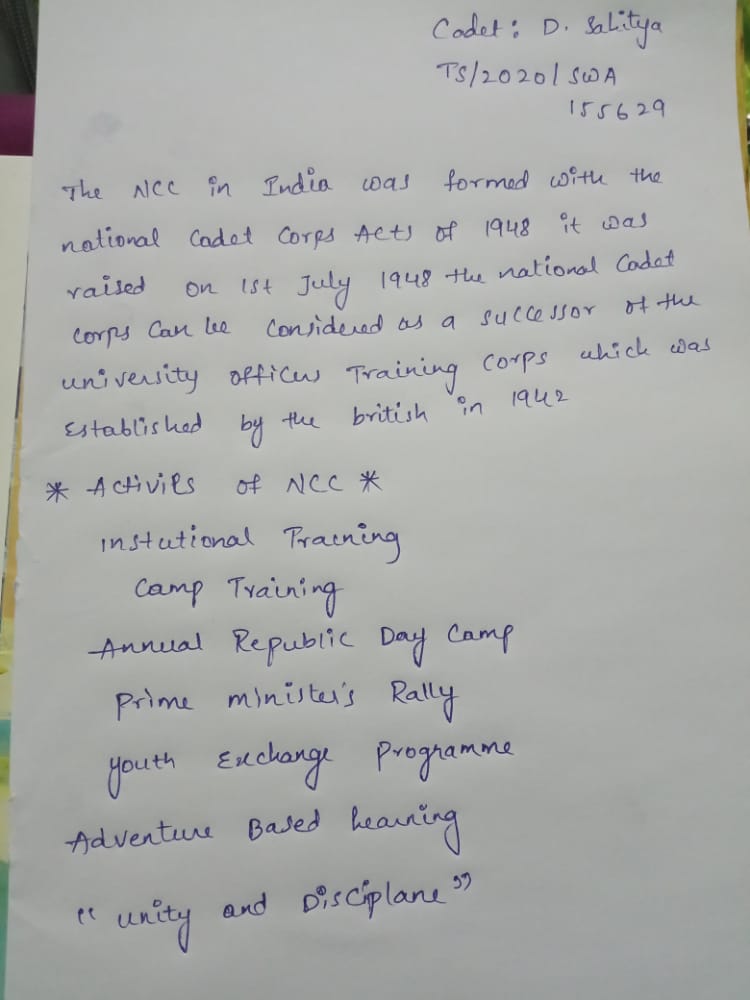 Cadet: D. Salitya
TS/2020/SWA
155629
The NCC in India was formed with the
national Cadet Corps Acts of 1948 it was
raised on 1st July 1948 the national Cadet
corps Can be Considered as a successor of the
university officers Training corps which was
Established by the british in 1942
* Activies of NCC *
instutional Tracning
Camp Training
Annual Republic Day Camp
Prime minister's Rally
youth Exchange Programme
Adventure Based Learning
"unity and Disciplane"